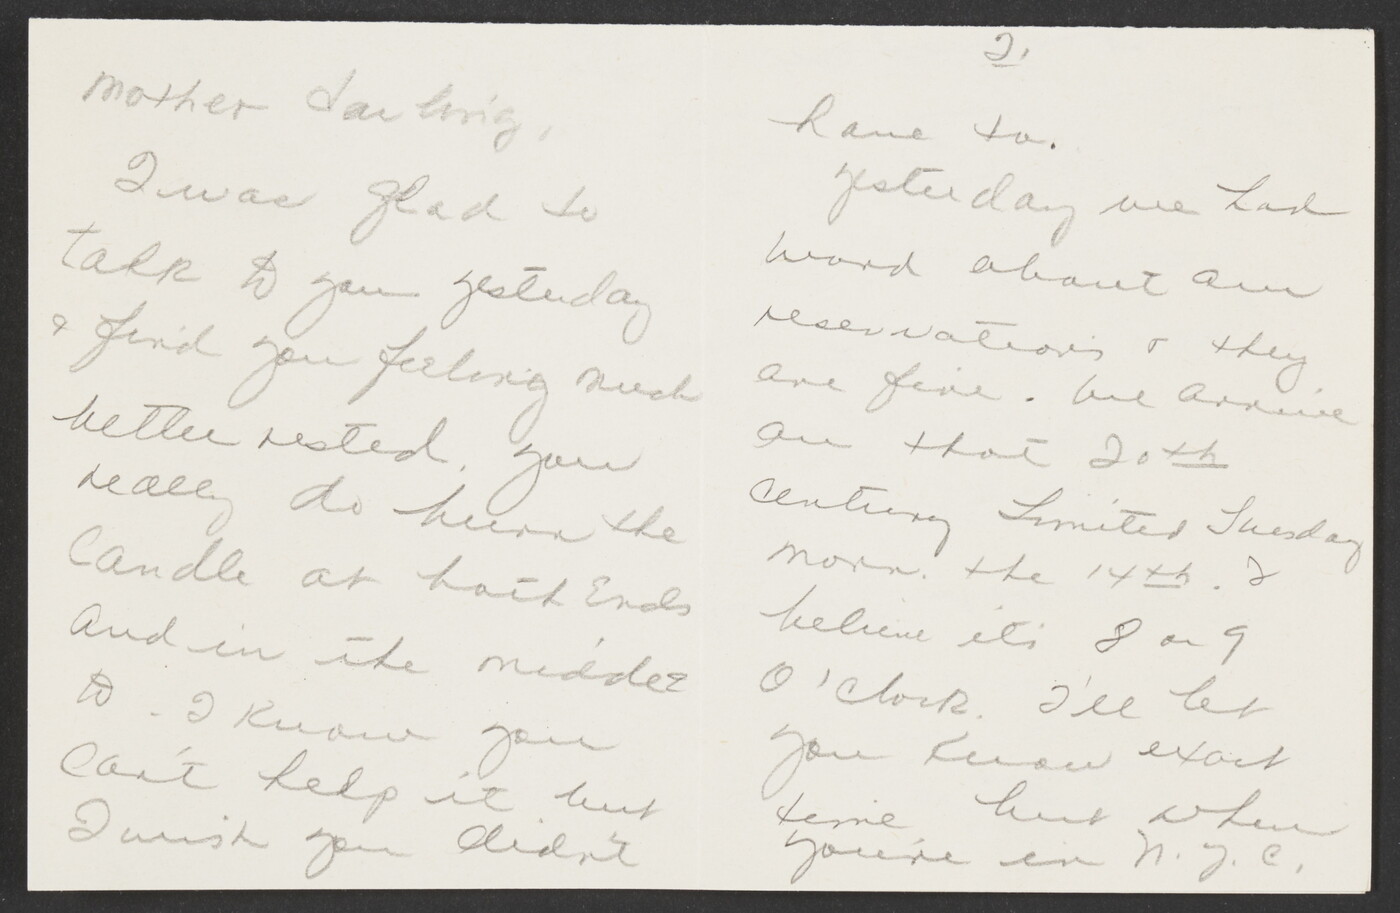 Mother darling,
I was glad to
talk to you yesterday
& find you feeling much
better rested. You
really do burn the
candle at both ends
and in the middle
to. I know you
can't help it but
I wish you didn't
2.
have to.
Yesterday we had
word about our
reservations & they
are fine. We arrive
on that 20th
Century Limited Tuesday
morn. the 14th. I
believe its 8 or 9
O'Clock. I'll let
you know exact
time but when
you're in N.Y.C.